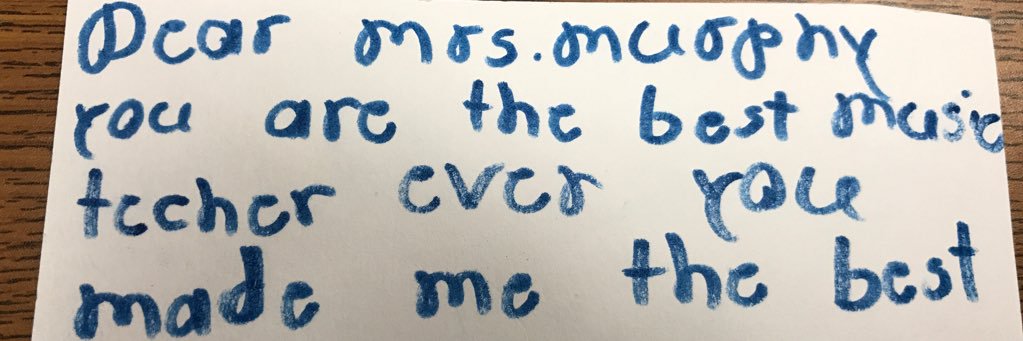 Dear mrs. murphy
you are the best music
teecher ever you
made me the best